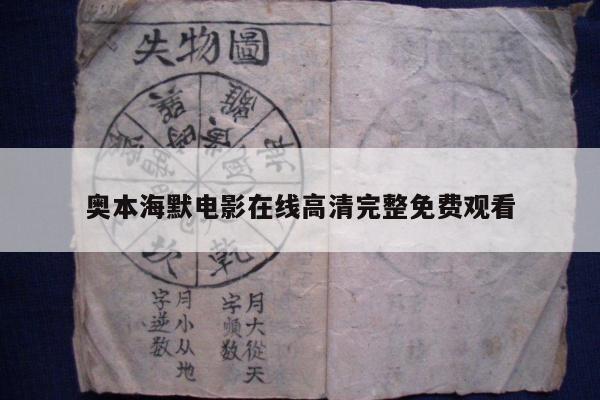 失物圖
離
乾
奥本海默电影在线高清完整免费观看
月大從天
字順数
月小从地
字逆数